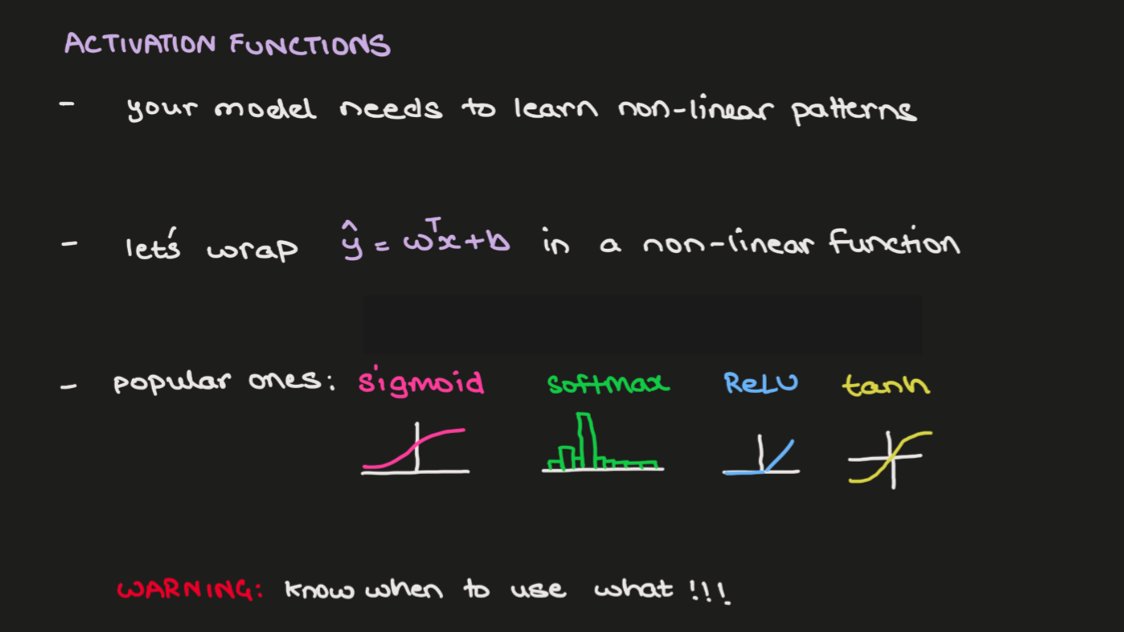 ACTIVATION FUNCTIONS
- your model needs to learn non-linear patterns
- let's wrap ŷ = wᵀx+b in a non-linear function
- popular ones: sigmoid softmax ReLU tanh
WARNING: know when to use what !!!